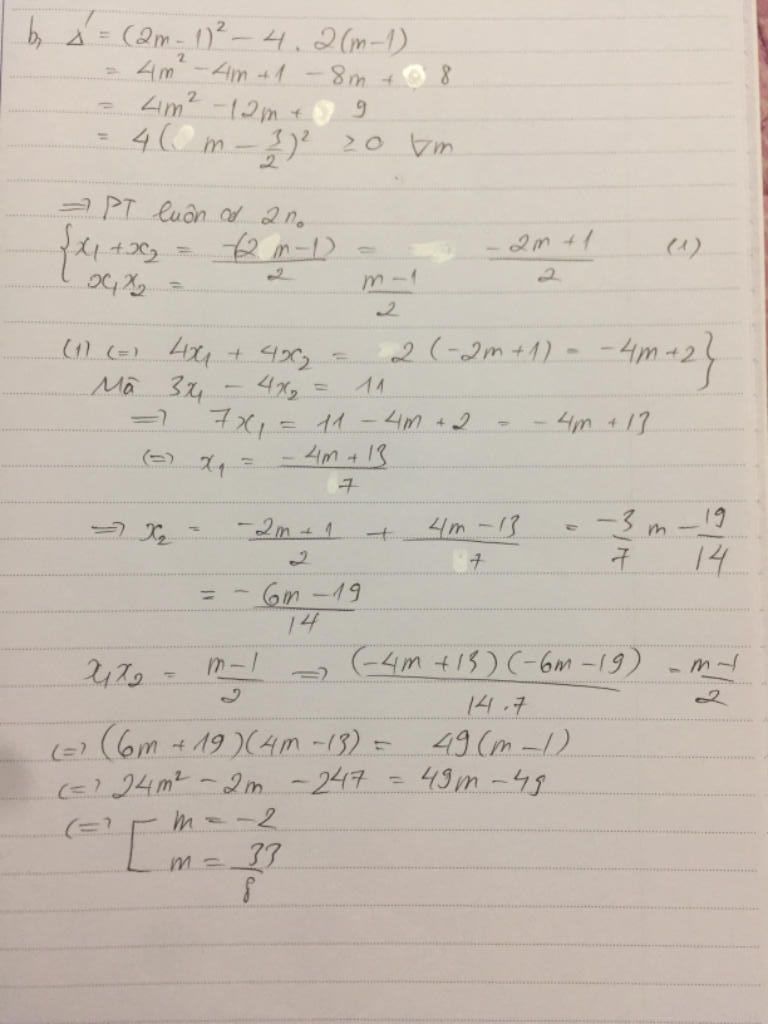 b, Δ' = (2m-1)² - 4 . 2(m-1)
= 4m² - 4m + 1 - 8m + 8
= 4m² - 12m + 9
= 4(m - 3/2)² ≥ 0 ∀m
=> PT luôn có 2 n₀
{ x₁ + x₂ = -(2m-1)/2 = (-2m+1)/2 (1)
x₁x₂ = (m-1)/2
(1) (=) 4x₁ + 4x₂ = 2(-2m+1) = -4m+2 }
Mà 3x₁ - 4x₂ = 11
=> 7x₁ = 11 - 4m + 2 = -4m + 13
(=) x₁ = (-4m+13)/7
=> x₂ = (-2m+1)/2 + (4m-13)/7 = -3/7 m - 19/14
= - (6m-19)/14
x₁x₂ = (m-1)/2 => (-4m+13)(-6m-19)/(14.7) = (m-1)/2
(=) (6m+19)(4m-13) = 49(m-1)
(=) 24m² - 2m - 247 = 49m - 49
(=) [ m = -2
m = 33/8